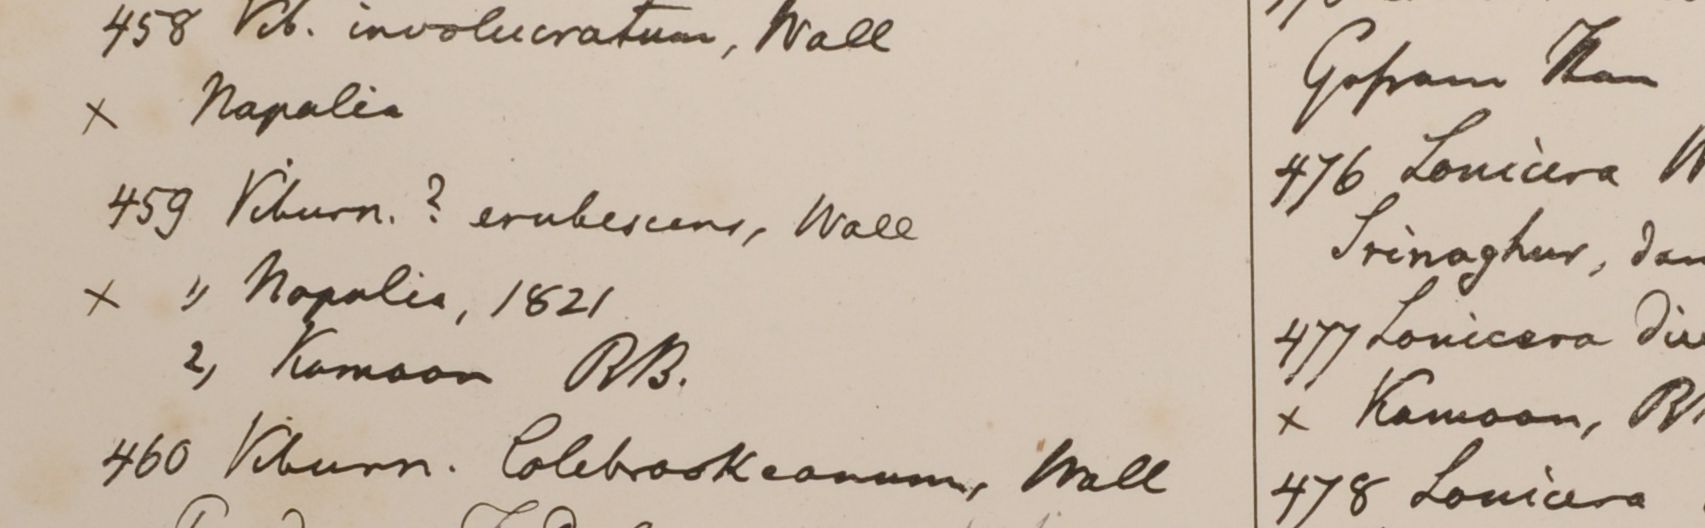 458 Vib. involucratum, Wall
× Napalia
459 Viburn. ? erubescens, Wall
× 1, Napalia, 1821
2, Kamaon RB.
460 Viburn. Colebrookeanum, Wall
476 Lonicera
Srinaghur,
477 Lonicera
× Kamaon,
478 Lonicera